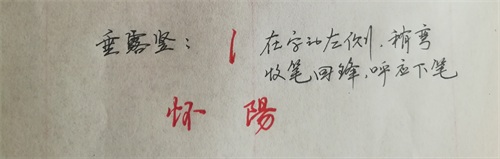 垂露竖： 在字的左侧，稍弯
收笔回锋，呼应下笔
怀 陽